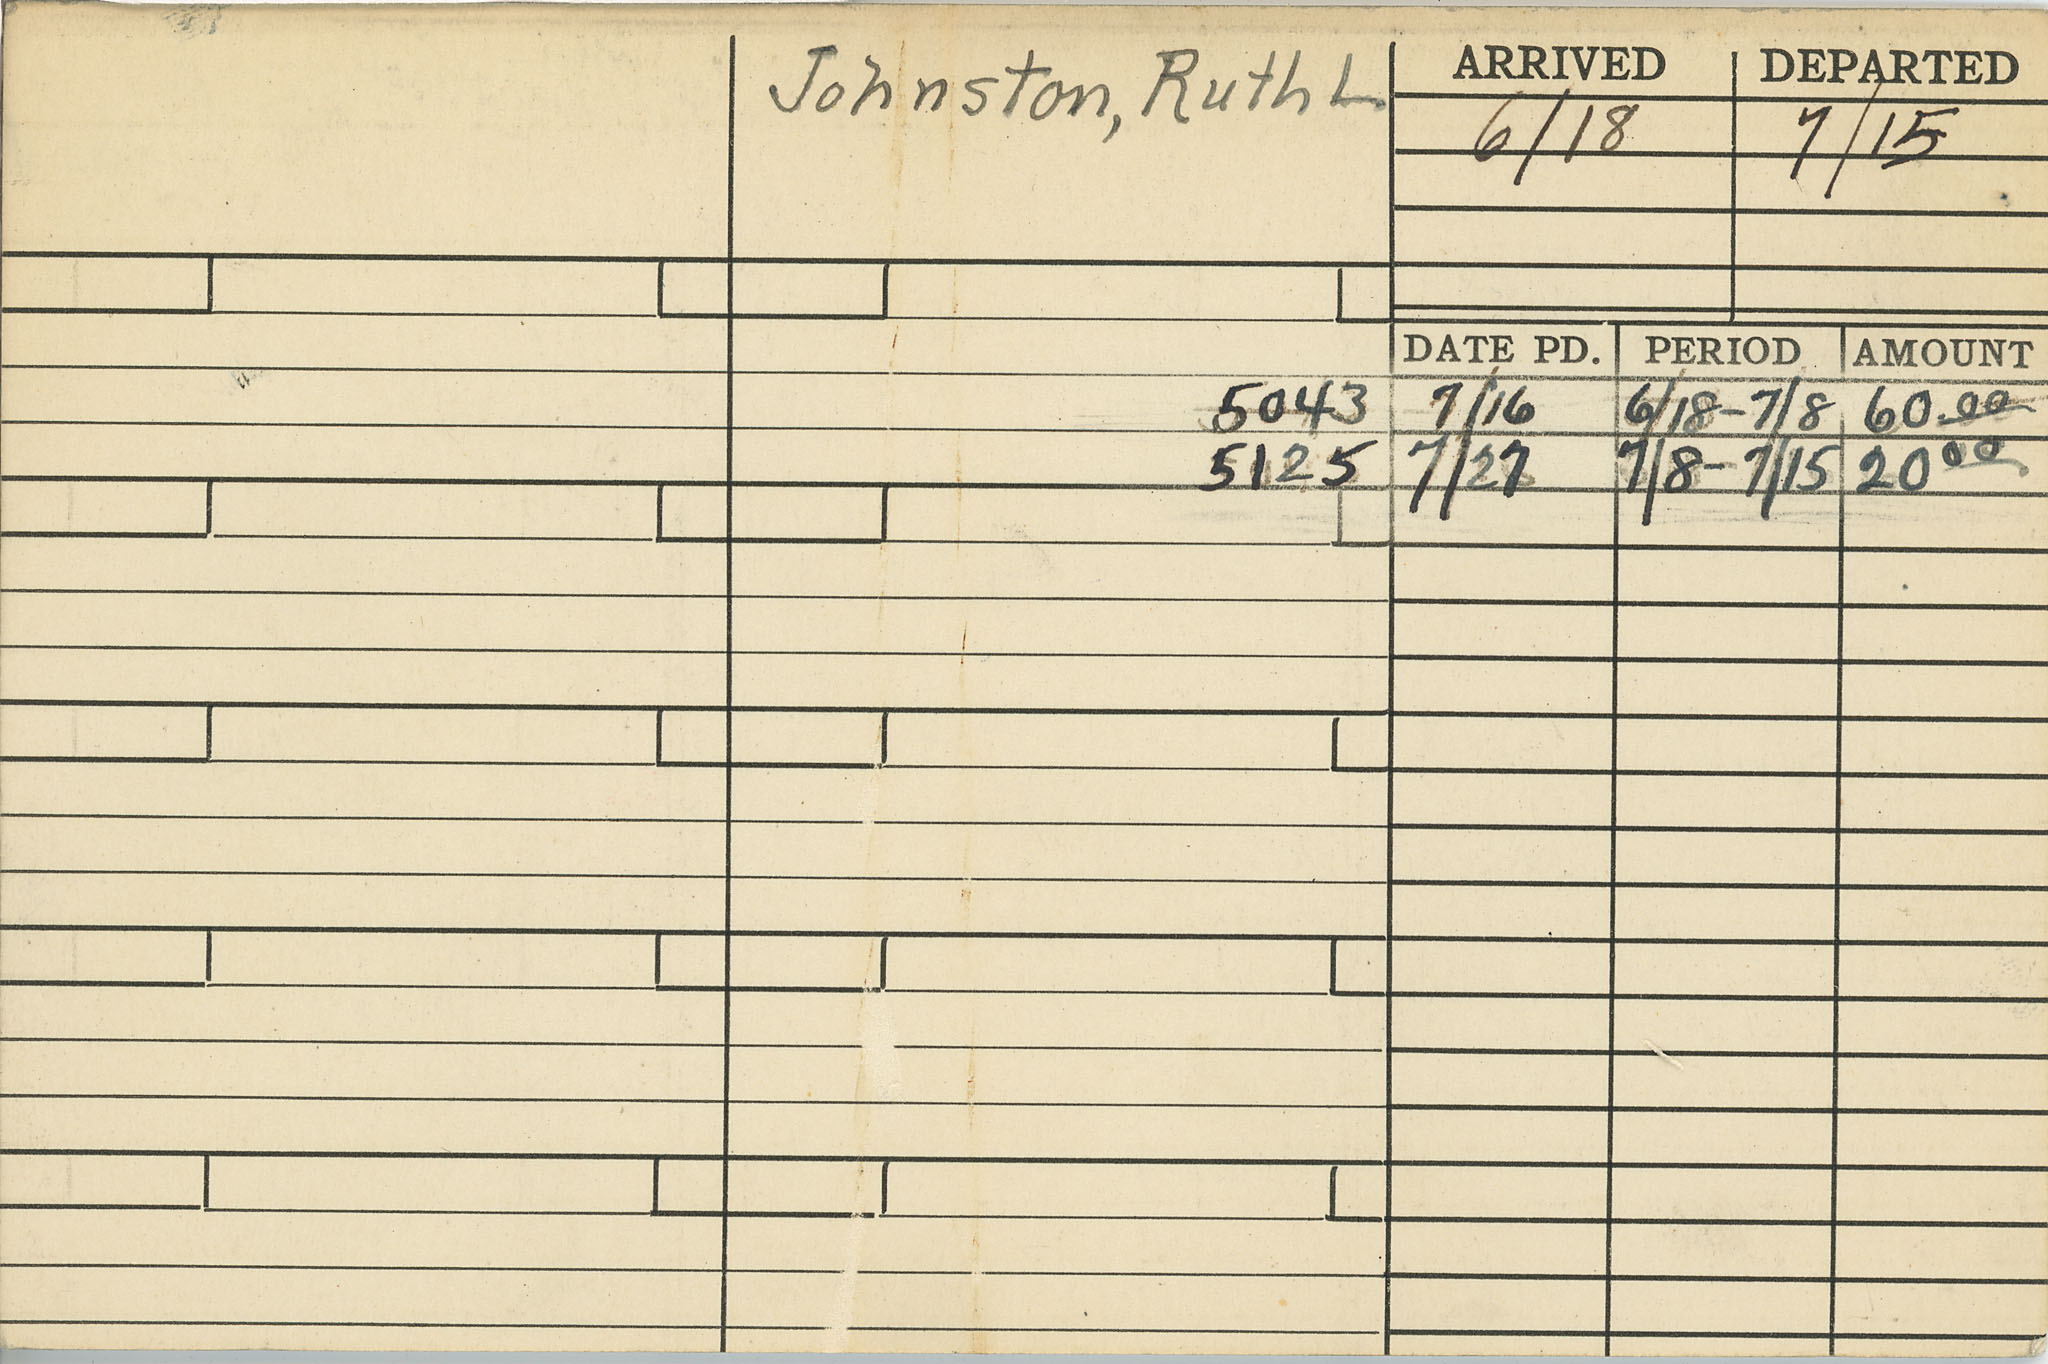 Johnston, Ruth L.
ARRIVED DEPARTED
6/18 7/15
DATE PD. PERIOD AMOUNT
5043 7/16 6/18-7/8 60.00
5125 7/27 7/8-7/15 20 00